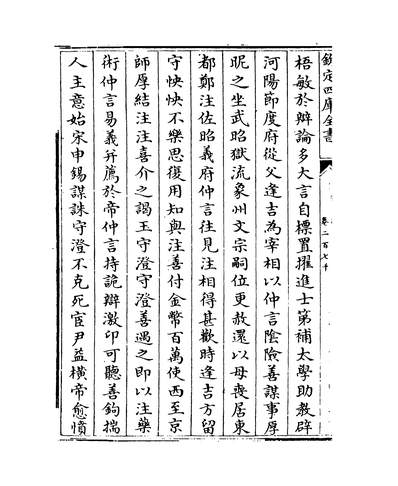 欽定四庫全書
卷二百七十
梧敏於辯論多大言自標置擢進士第補太學助教辟
河陽節度府從父逢吉為宰相以仲言陰險善謀事厚
昵之坐武昭獄流象州文宗嗣位更赦還以母喪居東
都鄭注佐昭義府仲言往見注相得甚歡時逢吉方留
守怏怏不樂思復用知與注善付金幣百萬使西至京
師厚結注注喜介之謁王守澄守澄善遇之即以注藥
術仲言易義幷薦於帝仲言持詭辯激卬可聽善鉤揣
人主意始宋申錫謀誅守澄不克死宦尹益橫帝愈憤